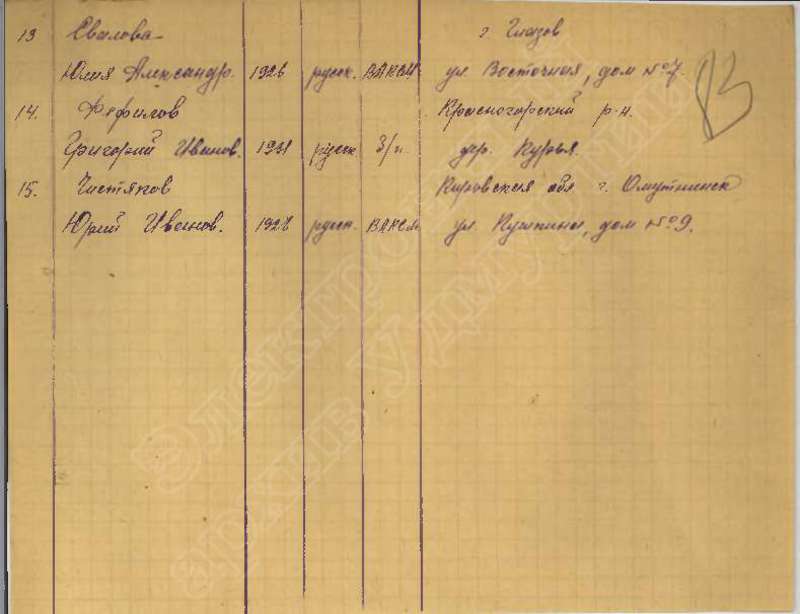 13 Евалова г. Глазов
Юлия Александр. 1926 русск. ВЛКСМ ул. Восточная, дом №7.
14. Фефилов Красногорский р-н.
Григорий Иванов. русск б/п. дер. Курья.
15. Чистяков Кировская обл г. Омутнинск
Юрий Иванов. русск. ВЛКСМ ул. Пушкина, дом №9.
Электронный
архив Удмуртии